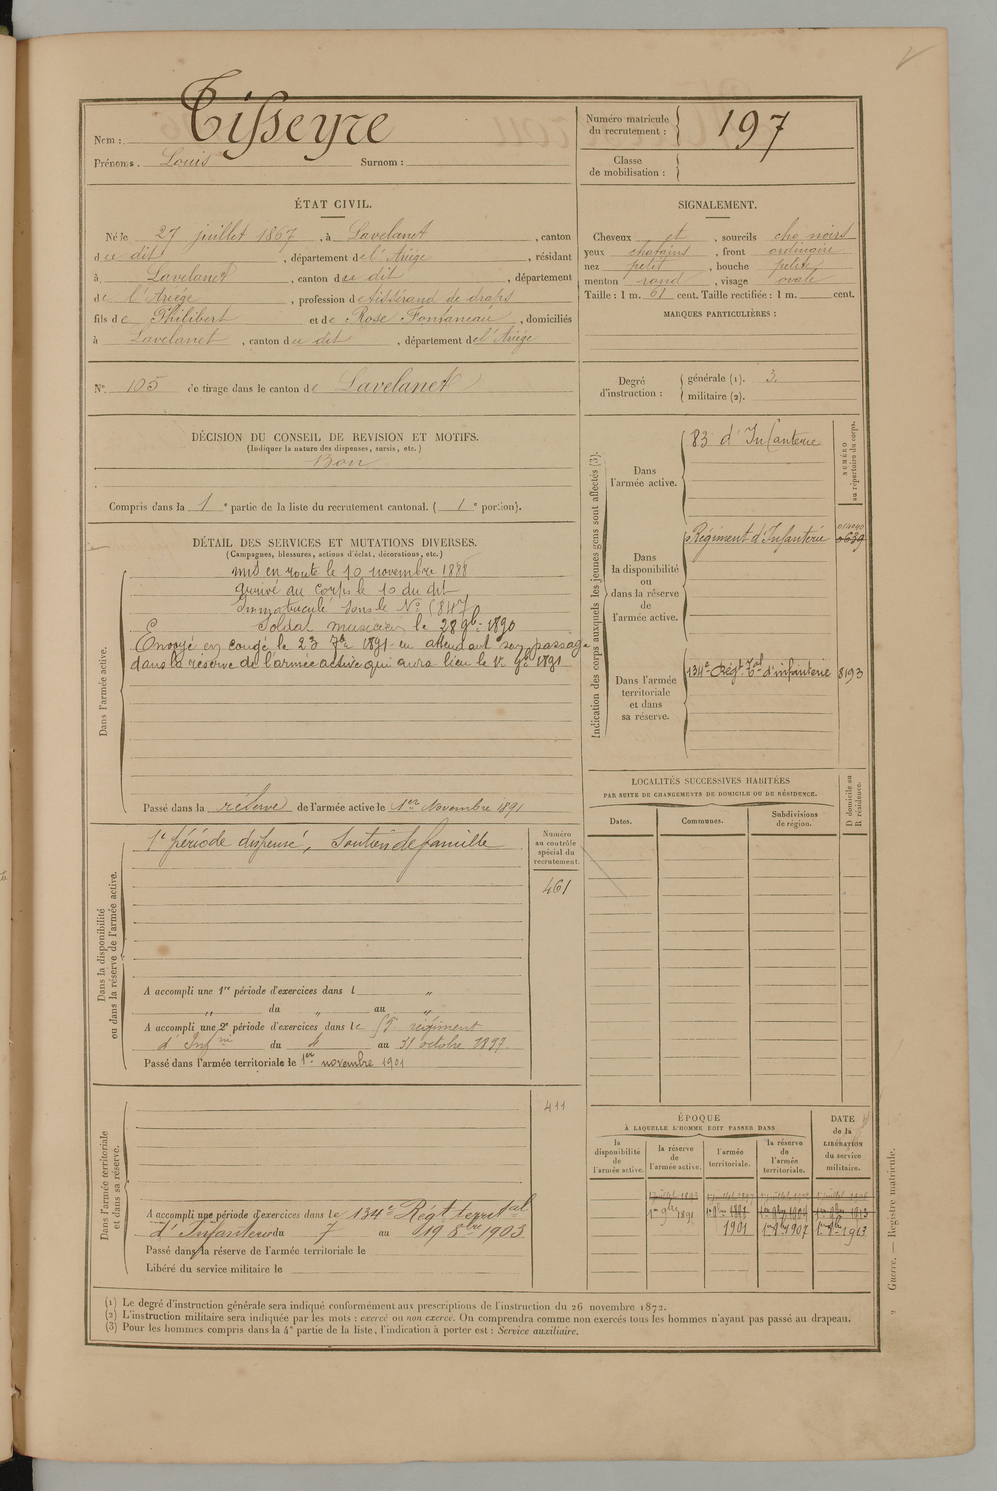 Tisseyre
Nom :
Prénoms. Louis Surnom :
Numéro matricule du recrutement : 197
Classe de mobilisation :
ÉTAT CIVIL.
Né le 27 juillet 1867, à Lavelanet, canton
du dit, département de l'Ariège, résidant
à Lavelanet, canton du dit, département
de l'Ariège, profession de tisserand de draps
fils de Philibert et de Rose Fontaneau, domiciliés
à Lavelanet, canton du dit, département de l'Ariège
N° 105 de tirage dans le canton de Lavelanet
SIGNALEMENT.
Cheveux et, sourcils cho noirs
yeux chatains, front ordinaire
nez petit, bouche petite
menton rond, visage ovale
Taille : 1 m. 61 cent. Taille rectifiée : 1 m. cent.
MARQUES PARTICULIÈRES :
Degré d'instruction : générale (1). 3.
militaire (2).
DÉCISION DU CONSEIL DE REVISION ET MOTIFS.
(Indiquer la nature des dispenses, sursis, etc.)
Bon
Compris dans la 1e partie de la liste du recrutement cantonal. ( 1e portion).
DÉTAIL DES SERVICES ET MUTATIONS DIVERSES.
(Campagnes, blessures, actions d'éclat, décorations, etc.)
Dans l'armée active.
mis en route le 10 novembre 1888
arrivé au corps le 10 du dit
Immatriculé sous le N°
Soldat musicien le 28 9bre 1890
Envoyé en congé le 23 7bre 1891 en attendant son passage
dans la réserve de l'armée active qui aura lieu le 1er 9bre 1891
Passé dans la réserve de l'armée active le 1er Novembre 1891
Indication des corps auxquels les jeunes gens sont affectés (3).
NUMÉRO au répertoire du corps.
Dans l'armée active.
83e d'Infanterie
Dans la disponibilité ou dans la réserve de l'armée active.
Régiment d'Infanterie
Dans l'armée territoriale et dans sa réserve.
134e Régt Tal d'infanterie 8193
LOCALITÉS SUCCESSIVES HABITÉES
PAR SUITE DE CHANGEMENTS DE DOMICILE OU DE RÉSIDENCE.
Dates. Communes. Subdivisions de région.
D domicile ou R résidence.
Dans la disponibilité ou dans la réserve de l'armée active.
Numéro au contrôle spécial du recrutement.
1e période dispensé, Soutien de famille
461
A accompli une 1re période d'exercices dans l "
" du " au "
A accompli une 2e période d'exercices dans le régiment
d'Infrie du 4 au 31 octobre 1897.
Passé dans l'armée territoriale le 1er novembre 1901
Dans l'armée territoriale et dans sa réserve.
411
A accompli une période d'exercices dans le 134e Régt territal
d'Infanterie du 7 au 19 8bre 1903
Passé dans la réserve de l'armée territoriale le
Libéré du service militaire le
ÉPOQUE
À LAQUELLE L'HOMME DOIT PASSER DANS
la disponibilité de l'armée active.
la réserve de l'armée active.
l'armée territoriale.
la réserve de l'armée territoriale.
DATE de la LIBÉRATION du service militaire.
1er 9bre 1891
1901 1er 9bre 1907 1er 9bre 1913
(1) Le degré d'instruction générale sera indiqué conformément aux prescriptions de l'instruction du 26 novembre 1872.
(2) L'instruction militaire sera indiquée par les mots : exercé ou non exercé. On comprendra comme non exercés tous les hommes n'ayant pas passé au drapeau.
(3) Pour les hommes compris dans la 4e partie de la liste, l'indication à porter est : Service auxiliaire.
2 Guerre. — Registre matricule.